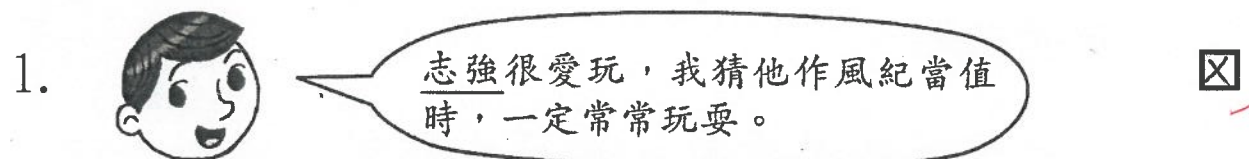 1.
志強很愛玩，我猜他作風紀當值
時，一定常常玩耍。